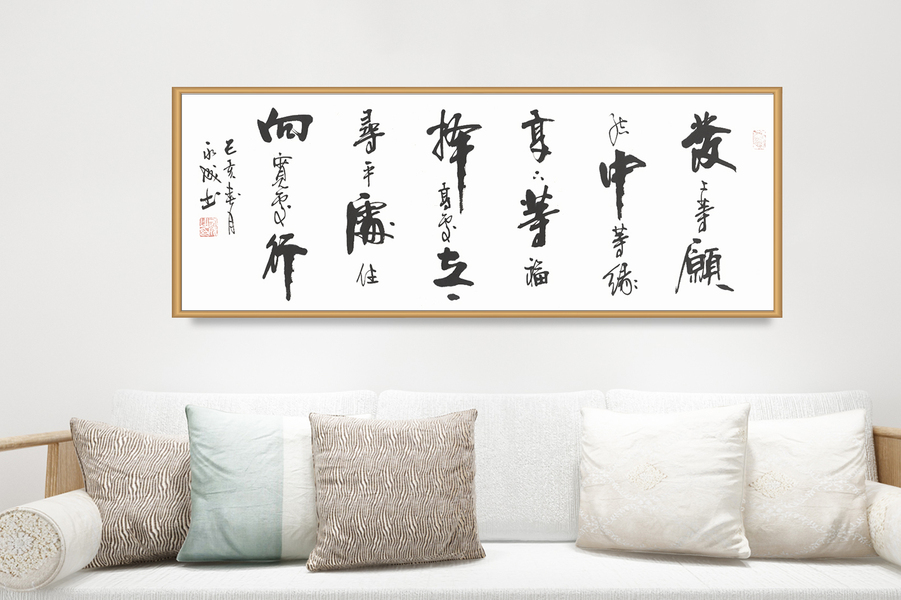 發上等願
結中等緣
享下等福
擇高處立
尋平處住
向寬處行
己亥春月
永成书